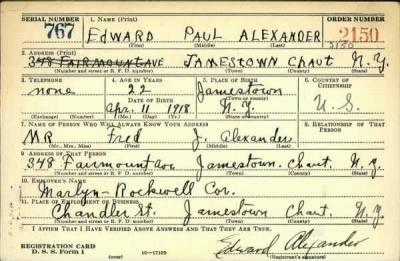 SERIAL NUMBER 1. NAME (Print) ORDER NUMBER
767 EDWARD PAUL ALEXANDER 2150
(First) (Middle) (Last) 2150
2. ADDRESS (Print)
348 FAIRMOUNT AVE JAMESTOWN CHAUT N.Y.
(Number and street or R. F. D. number) (Town) (County) (State)
3. TELEPHONE 4. AGE IN YEARS 5. PLACE OF BIRTH 6. COUNTRY OF CITIZENSHIP
none 22 Jamestown
DATE OF BIRTH (Town or county)
Apr. 11 1918 N.Y. U.S.
(Exchange) (Number) (Mo.) (Day) (Yr.) (State or country)
7. NAME OF PERSON WHO WILL ALWAYS KNOW YOUR ADDRESS 8. RELATIONSHIP OF THAT PERSON
MR Fred J. Alexander
(Mr., Mrs., Miss) (First) (Middle) (Last)
9. ADDRESS OF THAT PERSON
348 Fairmount Ave Jamestown. Chaut. N.Y.
(Number and street or R. F. D. number) (Town) (County) (State)
10. EMPLOYER'S NAME
Marlyn-Rockwell Cor.
11. PLACE OF EMPLOYMENT OR BUSINESS
Chandler St. Jamestown Chaut. N.Y.
(Number and street or R. F. D. number) (Town) (County) (State)
I AFFIRM THAT I HAVE VERIFIED ABOVE ANSWERS AND THAT THEY ARE TRUE.
REGISTRATION CARD Edward Alexander
D. S. S. Form 1 (over) 16—17105